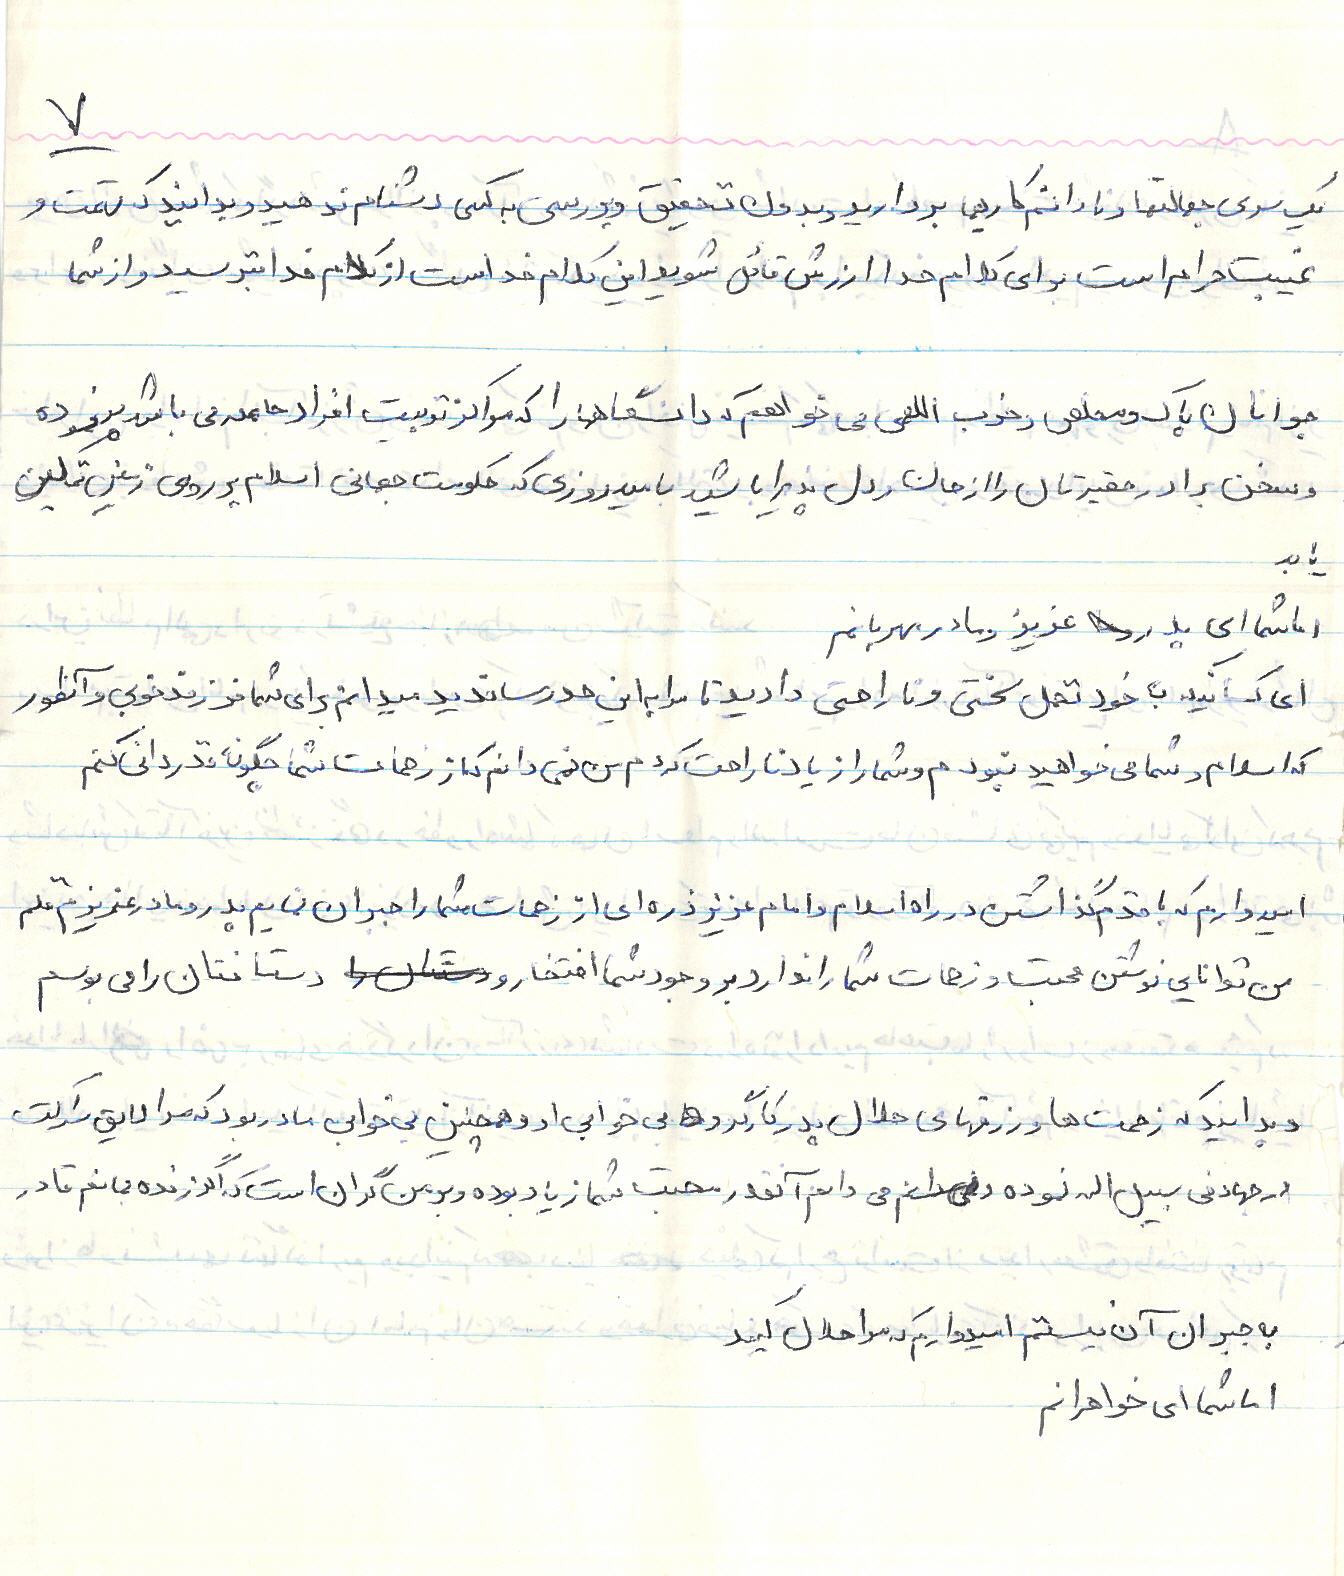 ۷
یک سری جهالتها و نادانم کاریها بردارید و بدون تحقیق و بررسی به کسی دشنام ندهید و بدانید که تهمت و
غیبت حرام است برای کلام خدا ارزش قائل شوید این کلام خداست از کلام خدا بترسید و از شما
جوانان پاک و مخلص و خوب اللهی می خواهم که دانشگاهها را که مراکز تربیت افراد جامعه می باشد پر نموده
و سخن برادر حقیرتان را از جان و دل پذیرا باشید بامید روزی که حکومت جهانی اسلام بر روی زمین تمکین
یابد
اما شما ای پدر و عزیز و مادر مهربانم
ای کسانیکه به خود تحمل سختی و ناراحتی دادید تا مرا به این حد رساندید میدانم برای شما فرزند خوبی و آنطور
که اسلام و شما می خواهید نبودم و شما را زیاد ناراحت کردم من نمی دانم که از زحمات شما چگونه قدردانی کنم
امیدوارم که با قدم گذاشتن در راه اسلام و امام عزیز ذره ای از زحمات شما را جبران نمایم پدر و مادر عزیزم قلم
من توانایی نوشتن محبت و زحمات شما را ندارد بر وجود شما افتخار و دستانتان را می بوسم
و بدانید که زحمت ها و رزقهای حلال پدر کارگر و بی خوابی او و همچنین بی خوابی مادر بود که مرا لایق شرکت
در جهاد فی سبیل اله نموده و می دانم آنقدر محبت شما زیاد بوده و بر من گران است که اگر زنده بمانم قادر
به جبران آن نیستم امیدوارم که مرا حلال کنید
اما شما ای خواهرانم